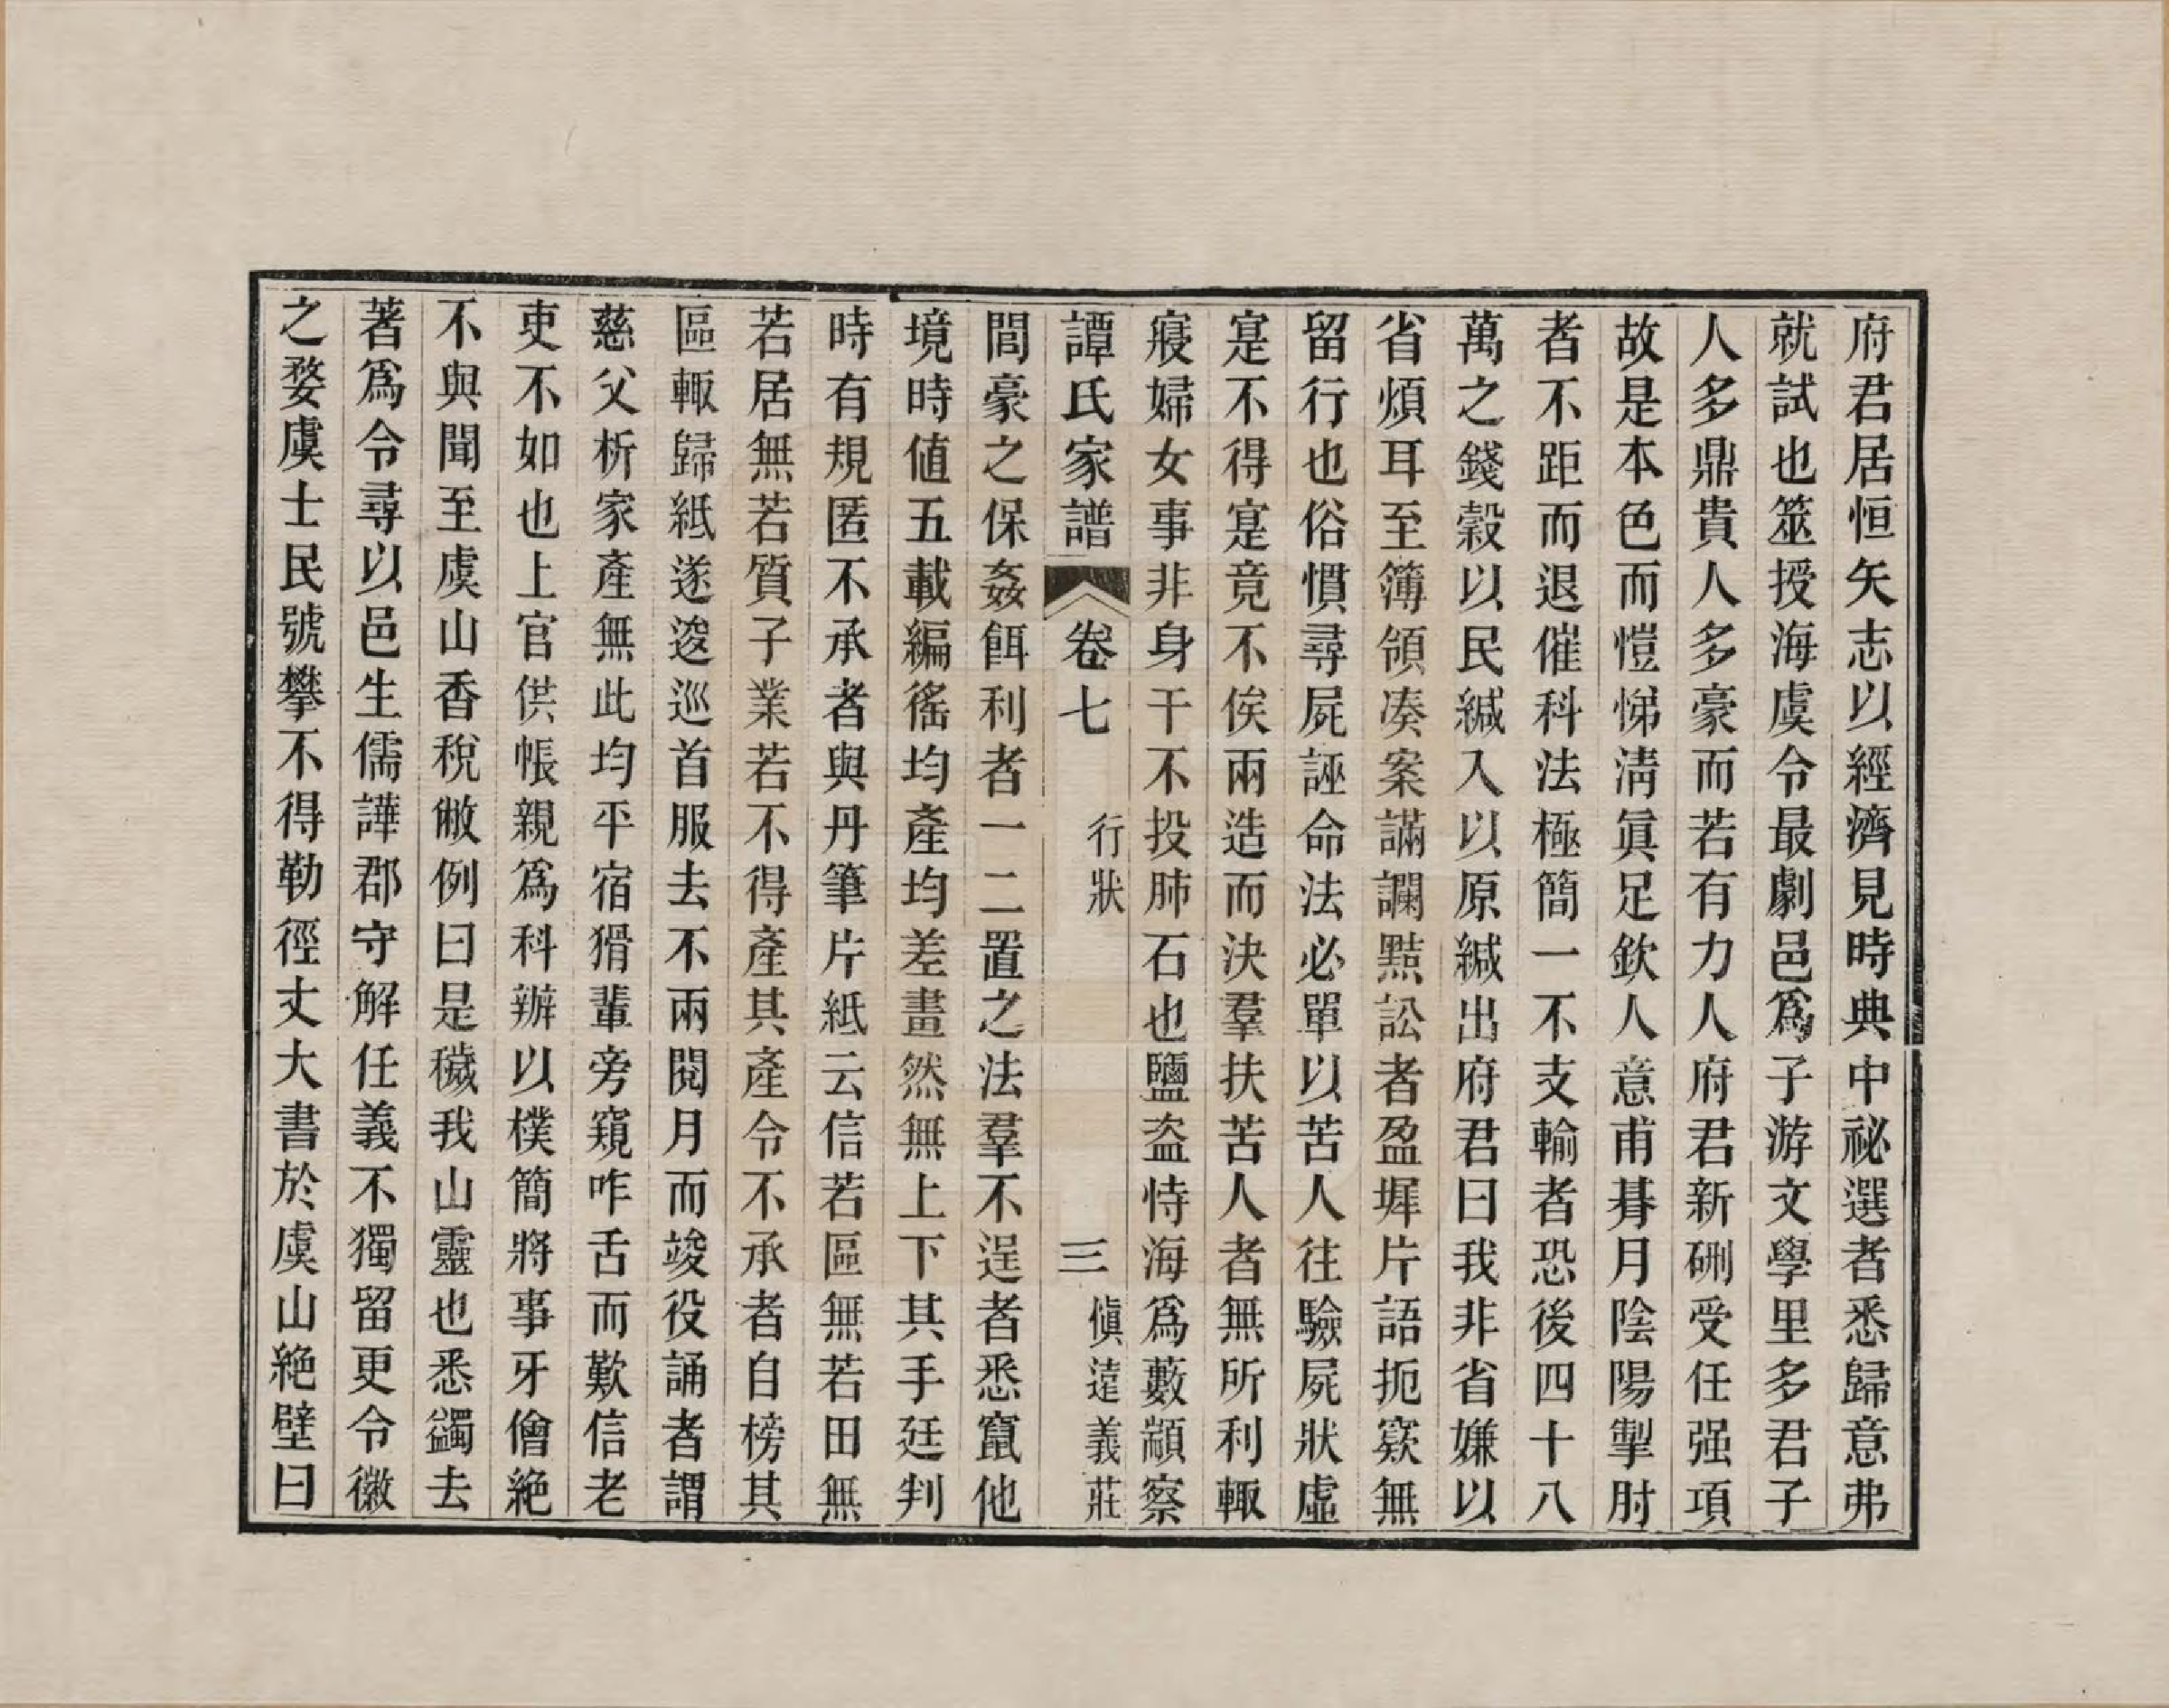 府君居恒矢志以經濟見時典中祕選者悉歸意弗
就試也筮授海虞令最劇邑爲子游文學里多君子
人多鼎貴人多豪而若有力人府君新硎受任强項
故是本色而愷悌淸眞足欽人意甫朞月陰陽掣肘
者不距而退催科法極簡一不支輸者恐後四十八
萬之錢穀以民緘入以原緘出府君曰我非省嫌以
省煩耳至簿領凑案讕㸃訟者盈墀片語扼窾無
留行也俗慣尋屍誣命法必單以苦人往驗屍狀虛
寔不得寔竟不俟兩造而決羣扶苦人者無所利輒
寢婦女事非身干不投肺石也鹽盗恃海爲藪顓察
譚氏家譜 卷七 行狀 三 愼遠義莊
閭豪之保姦餌利者一二置之法羣不逞者悉竄他
境時値五載編徭均產均差畫然無上下其手廷判
時有規匿不承者與丹筆片紙云信若區無若田無
若居無若質子業若不得產其產令不承者自榜其
區輒歸紙遂逡巡首服去不兩閱月而竣役誦者謂
慈父析家產無此均平宿猾輩旁窺咋舌而歎信老
吏不如也上官供帳親爲科辦以樸簡將事牙儈絶
不與聞至虞山香稅敝例曰是穢我山靈也悉蠲去
著爲令尋以邑生儒譁郡守解任義不獨留更令徽
之婺虞士民號攀不得勒徑丈大書於虞山絶壁曰